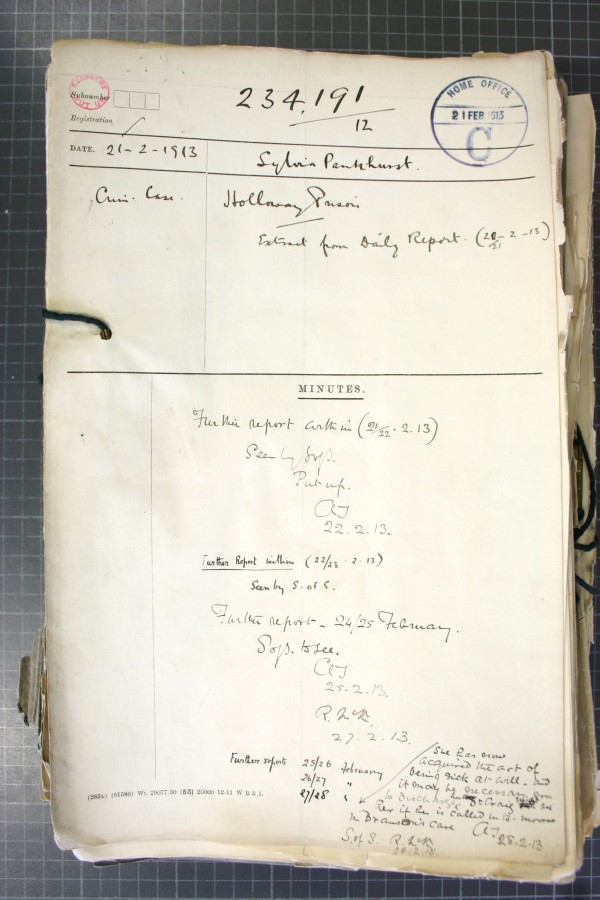 Subnumber
HOME OFFICE
21 FEB 1913
C
234,191
12
Registration
DATE. 21-2-1913
Sylvia Pankhurst.
Crim. Case.
Holloway Prison
Extract from Daily Report. (20/21-2-13)
MINUTES.
Further report within (21/22.2.13)
Seen by S of S.
Put up.
22.2.13.
Further Report within (22/23.2.13)
Seen by S. of S.
Further report - 24/25 February.
S of S. to see.
25.2.13.
27.2.13.
Further reports 25/26 February
26/27 "
27/28 "
She has now
acquired the art of
being sick at will - and
it may be necessary soon
to discharge Dr Craig will see
her if he is called in to-morrow
in Branson's case
28.2.13
S. of S.
28.2.13.
(285A) (61586) Wt. 29077-90 (83) 20000 12-11 W B & L